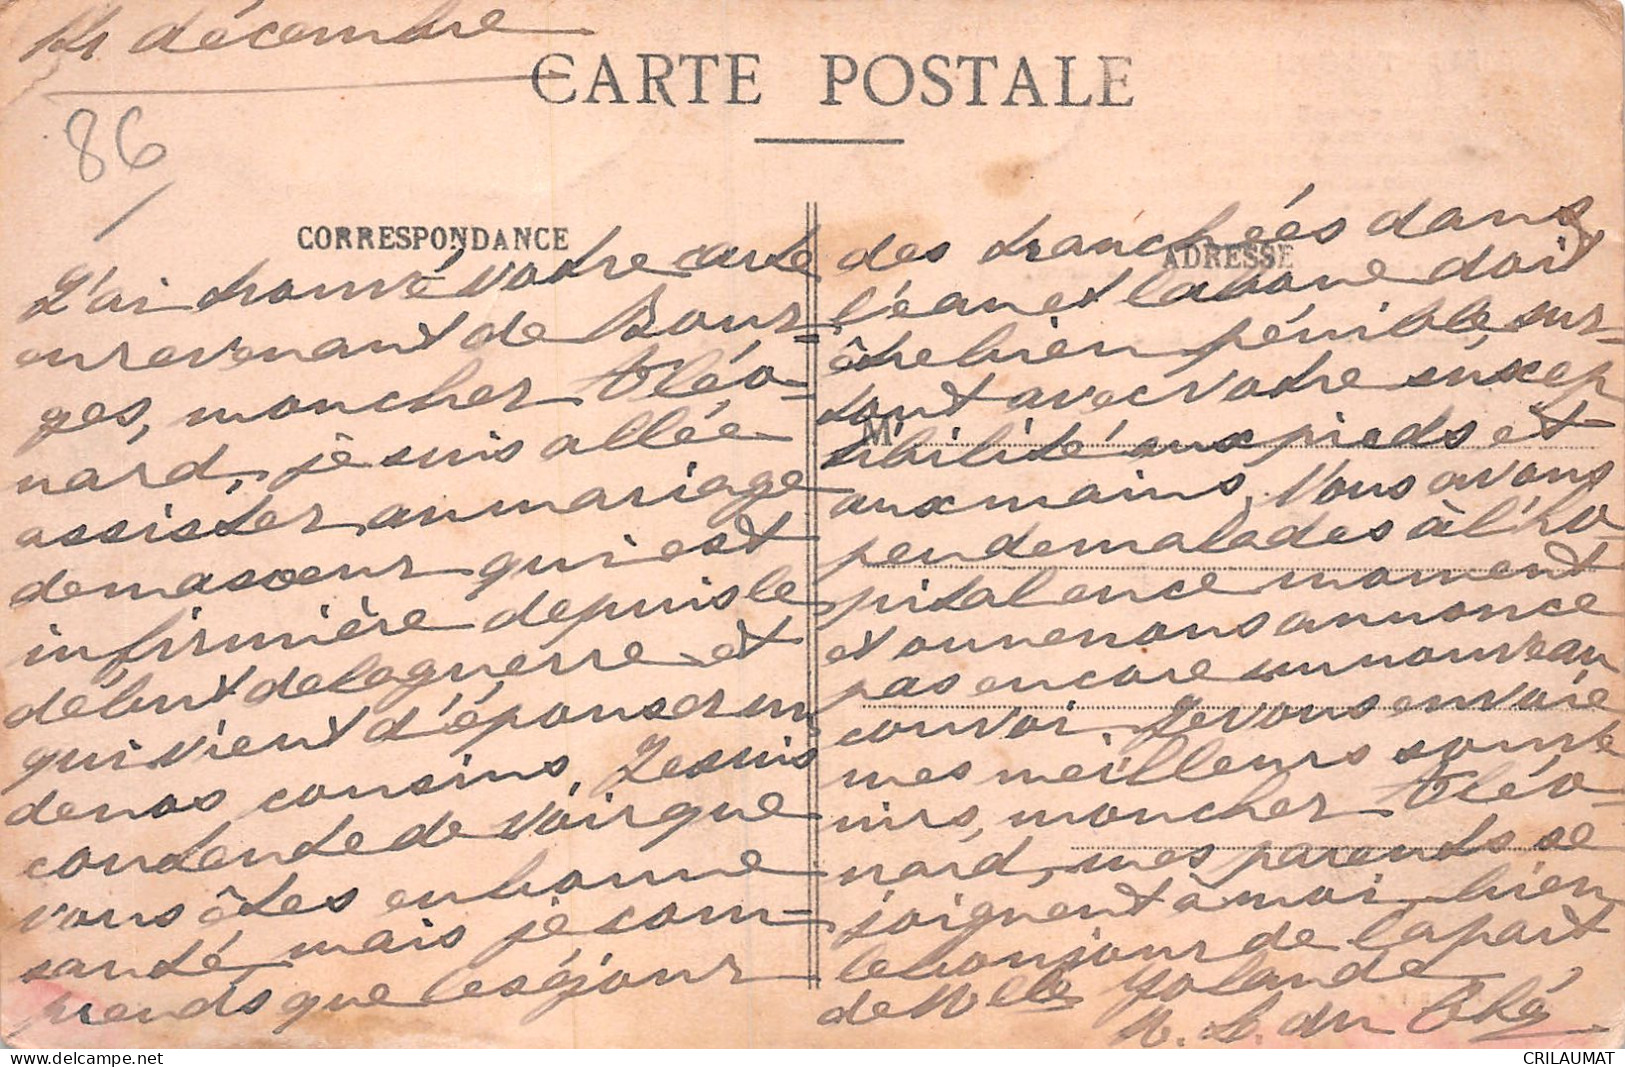 14 décembre
CARTE POSTALE
86
CORRESPONDANCE
J'ai trouvé votre carte
en revenant de Bour-
ges, mon cher Cléo-
nard, je suis allée
assister au mariage
de ma sœur qui est
infirmière depuis le
début de la guerre et
qui vient d'épouser un
de nos cousins. Je suis
contente de voir que
vous êtes en bonne
santé, mais je com-
prends que le séjour
ADRESSE
des tranchées dans
l'eau et la boue doit
être bien pénible, sur-
tout avec votre suscep
M
tibilité aux pieds et
aux mains. Nous avons
peu de malades à l'ho-
pital en ce moment
et on ne nous annonce
pas encore un nouveau
convoi. Je vous envoie
mes meilleurs souve
nirs, mon cher Cléo-
nard, mes parents se
joignent à moi, bien
le bonjour de la part
de Melle Yolande
du
CRILAUMAT